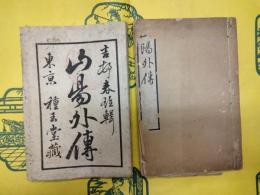 吉村春雄輯
山陽外傳
東京 種玉堂藏
陽外傳